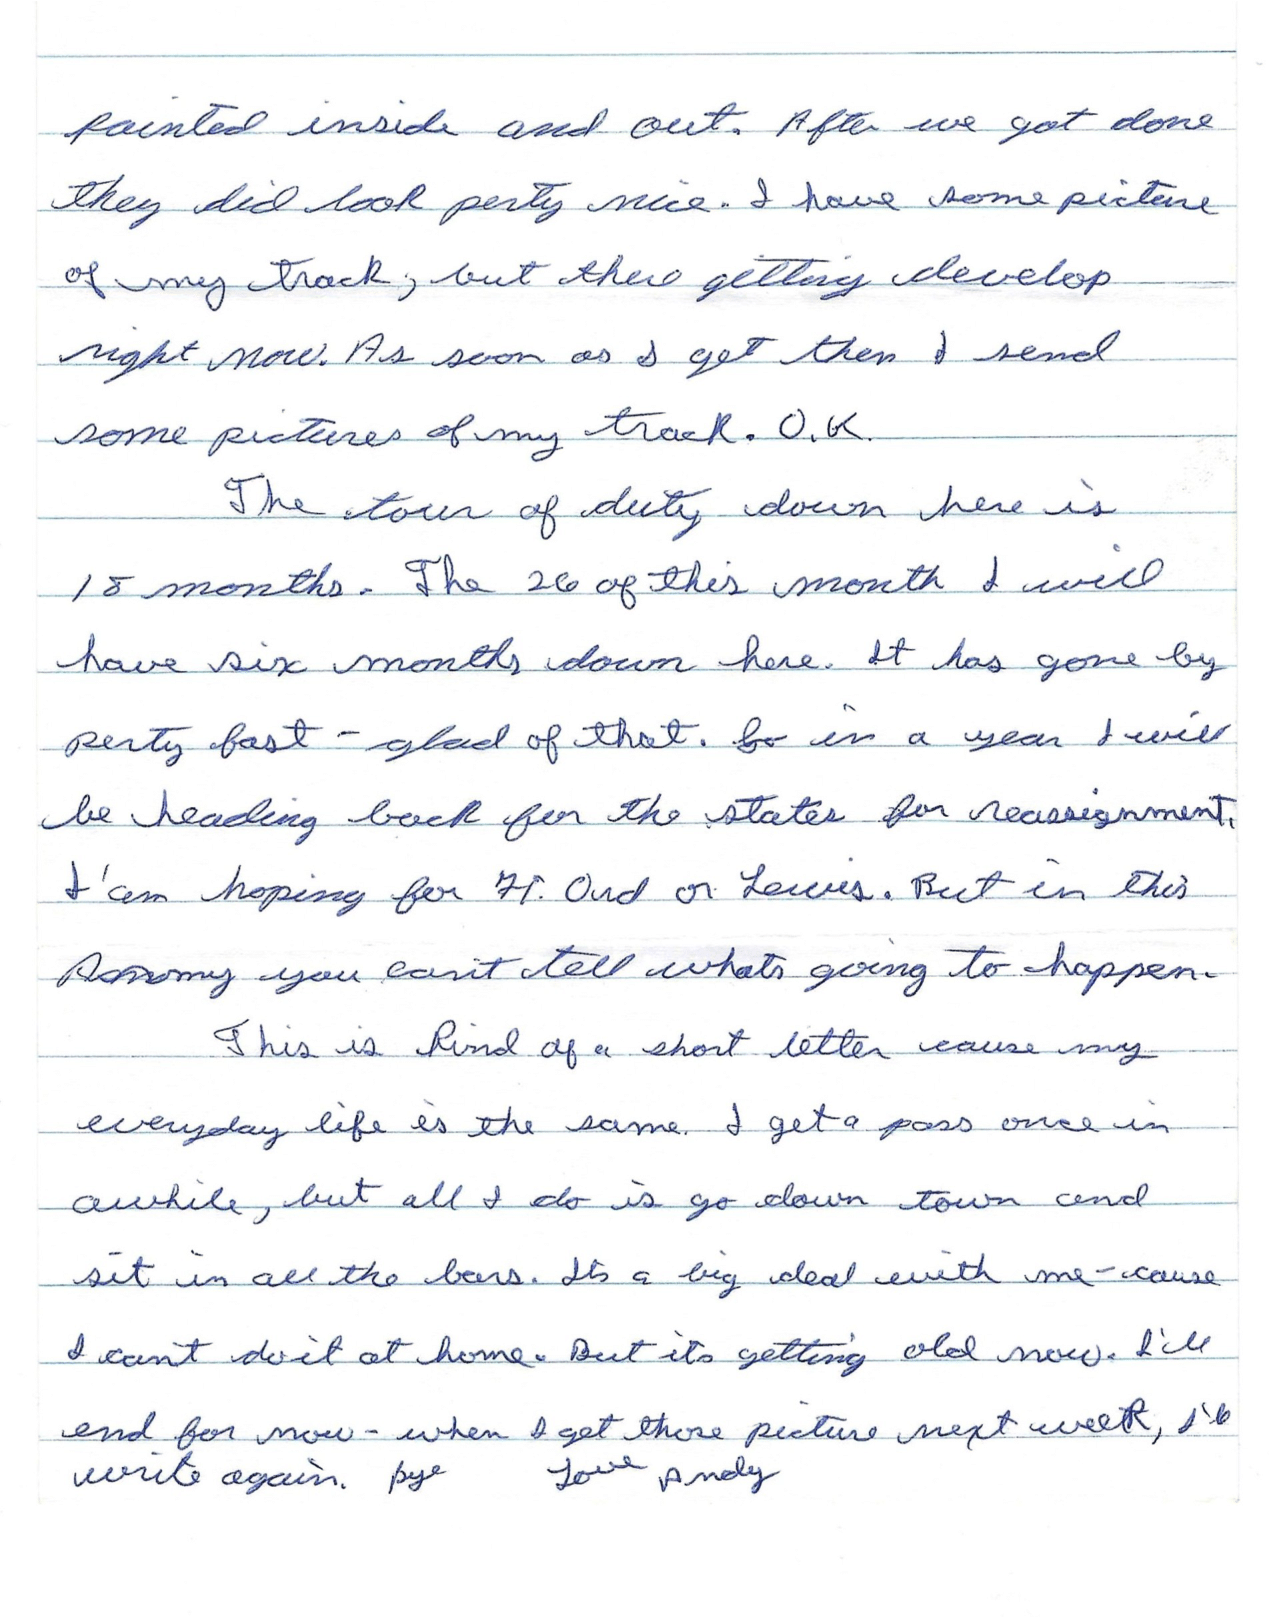 painted inside and out. After we got done
they did look perty nice. I have some picture
of my track, but there getting develop
right now. As soon as I get then I send
some pictures of my track. O.K.
The tour of duty down here is
18 months. The 26 of this month I will
have six months down here. It has gone by
perty fast - glad of that. So in a year I will
be heading back for the states for reassignment.
I'am hoping for Ft. Ord or Lewis. But in this
Army you can't tell whats going to happen.
This is kind of a short letter cause my
everyday life is the same. I get a pass once in
awhile, but all I do is go down town and
sit in all the bars. Its a big deal with me - cause
I can't do it at home. But its getting old now. I'll
end for now - when I get those picture next week, I'll
write again. bye Love Andy